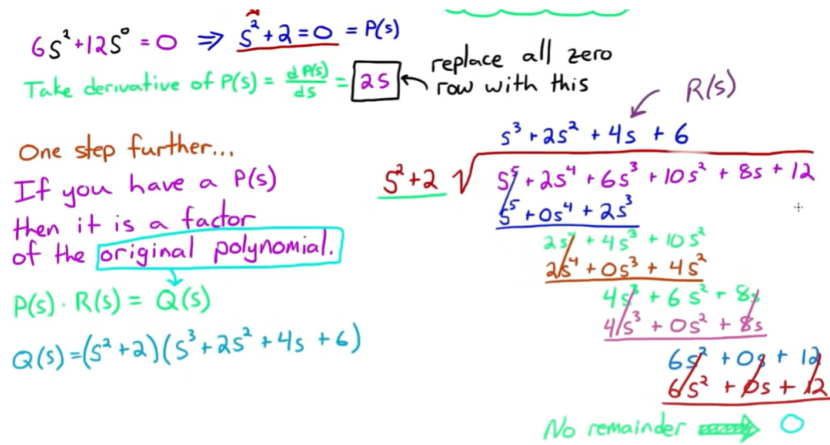 6s² + 12s⁰ = 0 ⇒ s² + 2 = 0 = P(s)
Take derivative of P(s) = dP(s)/ds = 2s
replace all zero
row with this
One step further...
If you have a P(s)
then it is a factor
of the original polynomial.
P(s) · R(s) = Q(s)
Q(s) = (s² + 2)(s³ + 2s² + 4s + 6)
R(s)
s³ + 2s² + 4s + 6
s² + 2 √ s⁵ + 2s⁴ + 6s³ + 10s² + 8s + 12
s⁵ + 0s⁴ + 2s³
2s⁴ + 4s³ + 10s²
2s⁴ + 0s³ + 4s²
4s³ + 6s² + 8s
4s³ + 0s² + 8s
6s² + 0s + 12
6s² + 0s + 12
No remainder ⇒ 0